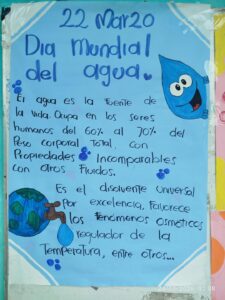 22 Marzo
Dia Mundial
del agua.
El agua es la fuente de
la vida. Ocupa en los seres
humanos del 60% al 70% del
Peso corporal Total, con
Propiedades Incomparables
con otros Fluidos.
Es el disolvente universal
Por excelencia, Favorece
los fenómenos osmóticos
regulador de la
Temperatura, entre otros...